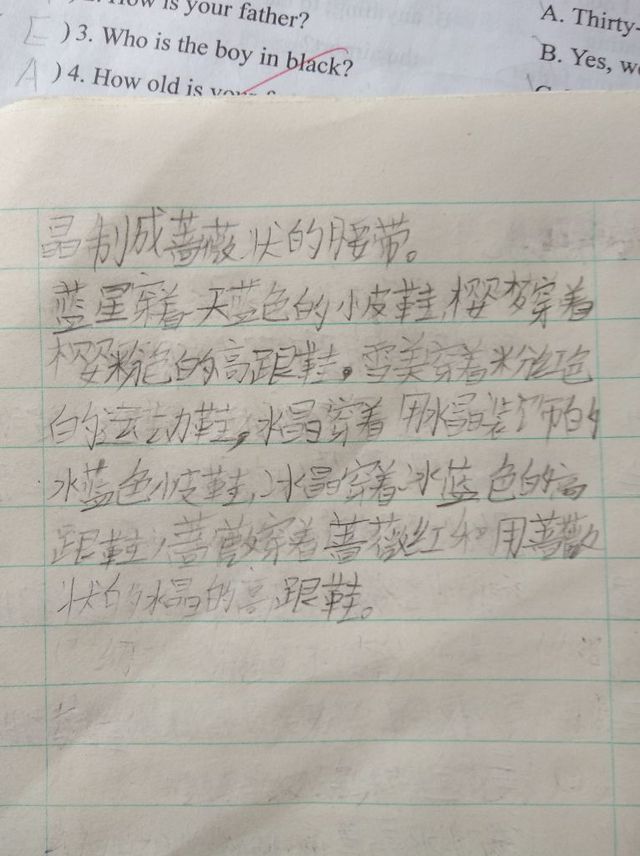 is your father?
E ) 3. Who is the boy in black?
A ) 4. How old is
A. Thirty-
B. Yes, w
晶制成蔷薇状的腰带。
蓝星穿着天蓝色的小皮鞋,樱梦穿着
樱粉色的高跟鞋,雪美穿着粉红色
的运动鞋,水晶穿着用水晶装饰的
水蓝色小皮鞋,冰晶穿着冰蓝色的高
跟鞋,蔷薇穿着蔷薇红和用蔷薇
状的水晶的高跟鞋。